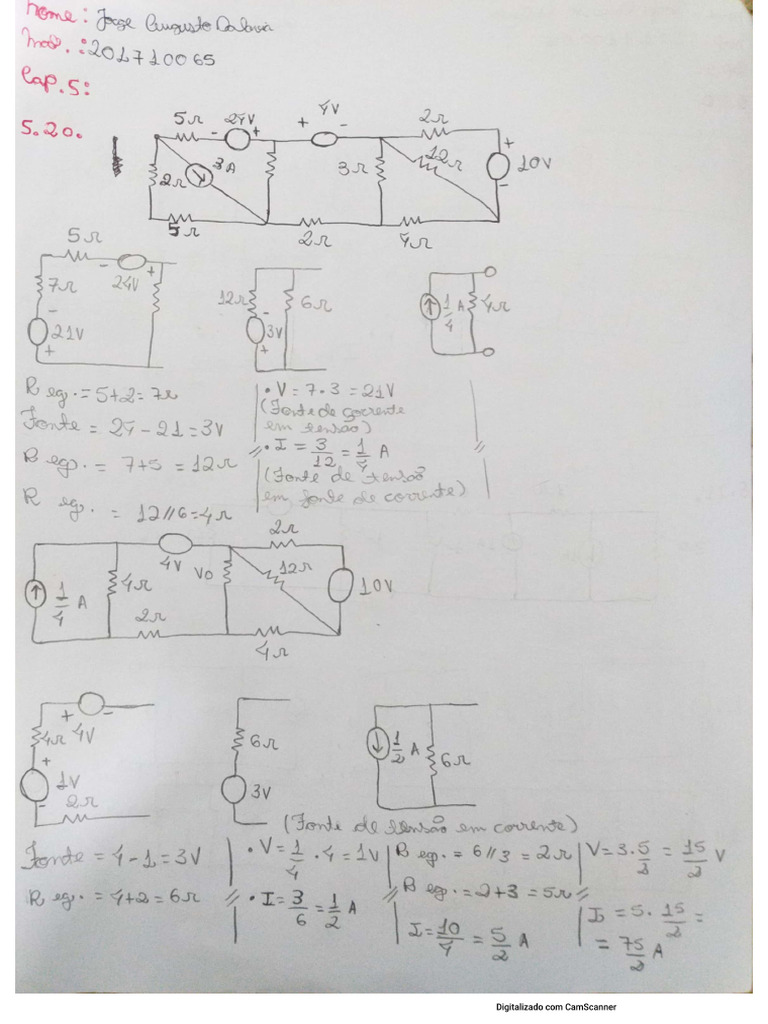 Nome: Jorge Augusto
Mat.: 201710065
Cap. 5:
5.20.
5Ω - 24V + + 4V - 2Ω
2Ω 3A 3Ω 12Ω + 10V -
5Ω 2Ω 4Ω
5Ω
7Ω - 24V + 12Ω 6Ω 1/4 A 4Ω
- 21V + 3V +
R eq. = 5+2 = 7Ω
Fonte = 24 - 21 = 3V
R eq. = 7+5 = 12Ω
R eq. = 12//6 = 4Ω
• V = 7 . 3 = 21V
(Fonte de corrente
em tensão)
• I = 3/12 = 1/4 A
(Fonte de tensão
em fonte de corrente)
2Ω
4V VO 12Ω
1/4 A 4Ω 10V
2Ω
4Ω
+ -
4Ω 4V 6Ω 1/2 A 6Ω
+ 1V - 3V
2Ω
(Fonte de tensão em corrente)
Fonte = 4 - 1 = 3V
R eq. = 4+2 = 6Ω
• V = 1/4 . 4 = 1V
• I = 3/6 = 1/2 A
R eq. = 6//3 = 2Ω
R eq. = 2+3 = 5Ω
I = 10/4 = 5/2 A
V = 3.5/2 = 15/2 V
I = 5. 15/2 =
= 75/2 A
Digitalizado com CamScanner